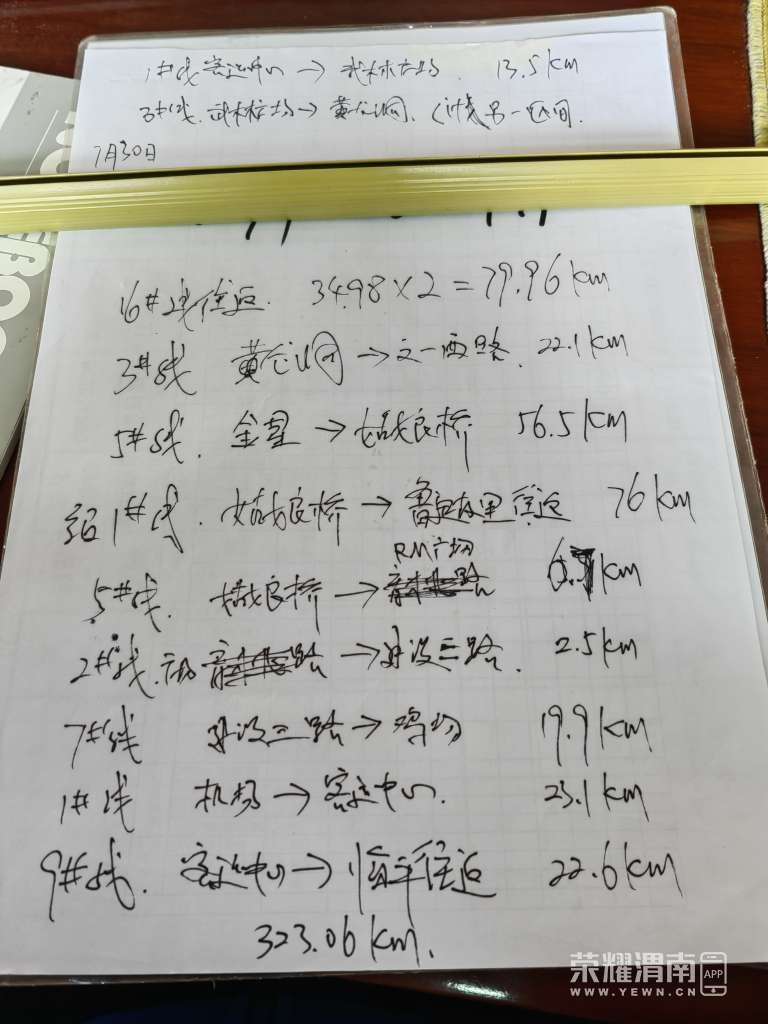 1#线 客运中心 → 武林广场 13.5km
3#线. 武林广场 → 黄龙洞. (计 另一区间.
7月30日
16#线往返. 34.98×2=79.96km
3#线 黄龙洞 → 文一西路. 22.1km
5#线. 金星 → 姑娘桥 56.5km
绍1#线. 姑娘桥 → 往返 76km
人民广场
5#线. 姑娘桥 → km
2#线. → 建设三路. 2.5km
7#线 建设三路 → 19.9km
1#线 机场 → 客运中心. 23.1km
9#线. 客运中心 → 临平往返 22.6km
323.06km.
荣耀渭南 APP
WWW.YEWN.CN